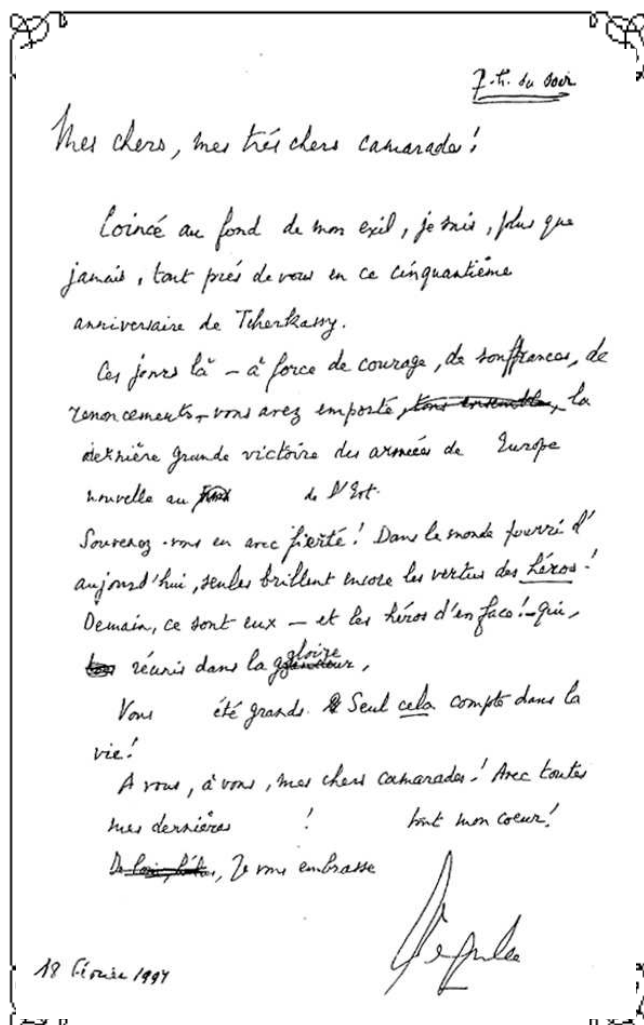 7.h. du soir
Mes chers, mes très chers camarades!
Coincé au fond de mon exil, je suis, plus que
jamais, tout près de vous en ce cinquantième
anniversaire de Tcherkassy.
Ces jours là – à force de courage, de souffrances, de
renoncements – vous avez emporté, tous ensemble, la
dernière grande victoire des armées de Europe
nouvelle au de l'Est.
Souvenez-vous en avec fierté! Dans le monde pourri d'
aujourd'hui, seules brillent encore les vertus des héros!
Demain, ce sont eux – et les héros d'en face! – qui,
réunis dans la gloire,
Vous été grands. Seul cela compte dans la
vie!
A vous, à vous, mes chers camarades! Avec toutes
mes dernières ! tout mon coeur!
Je vous embrasse
18 février 1994